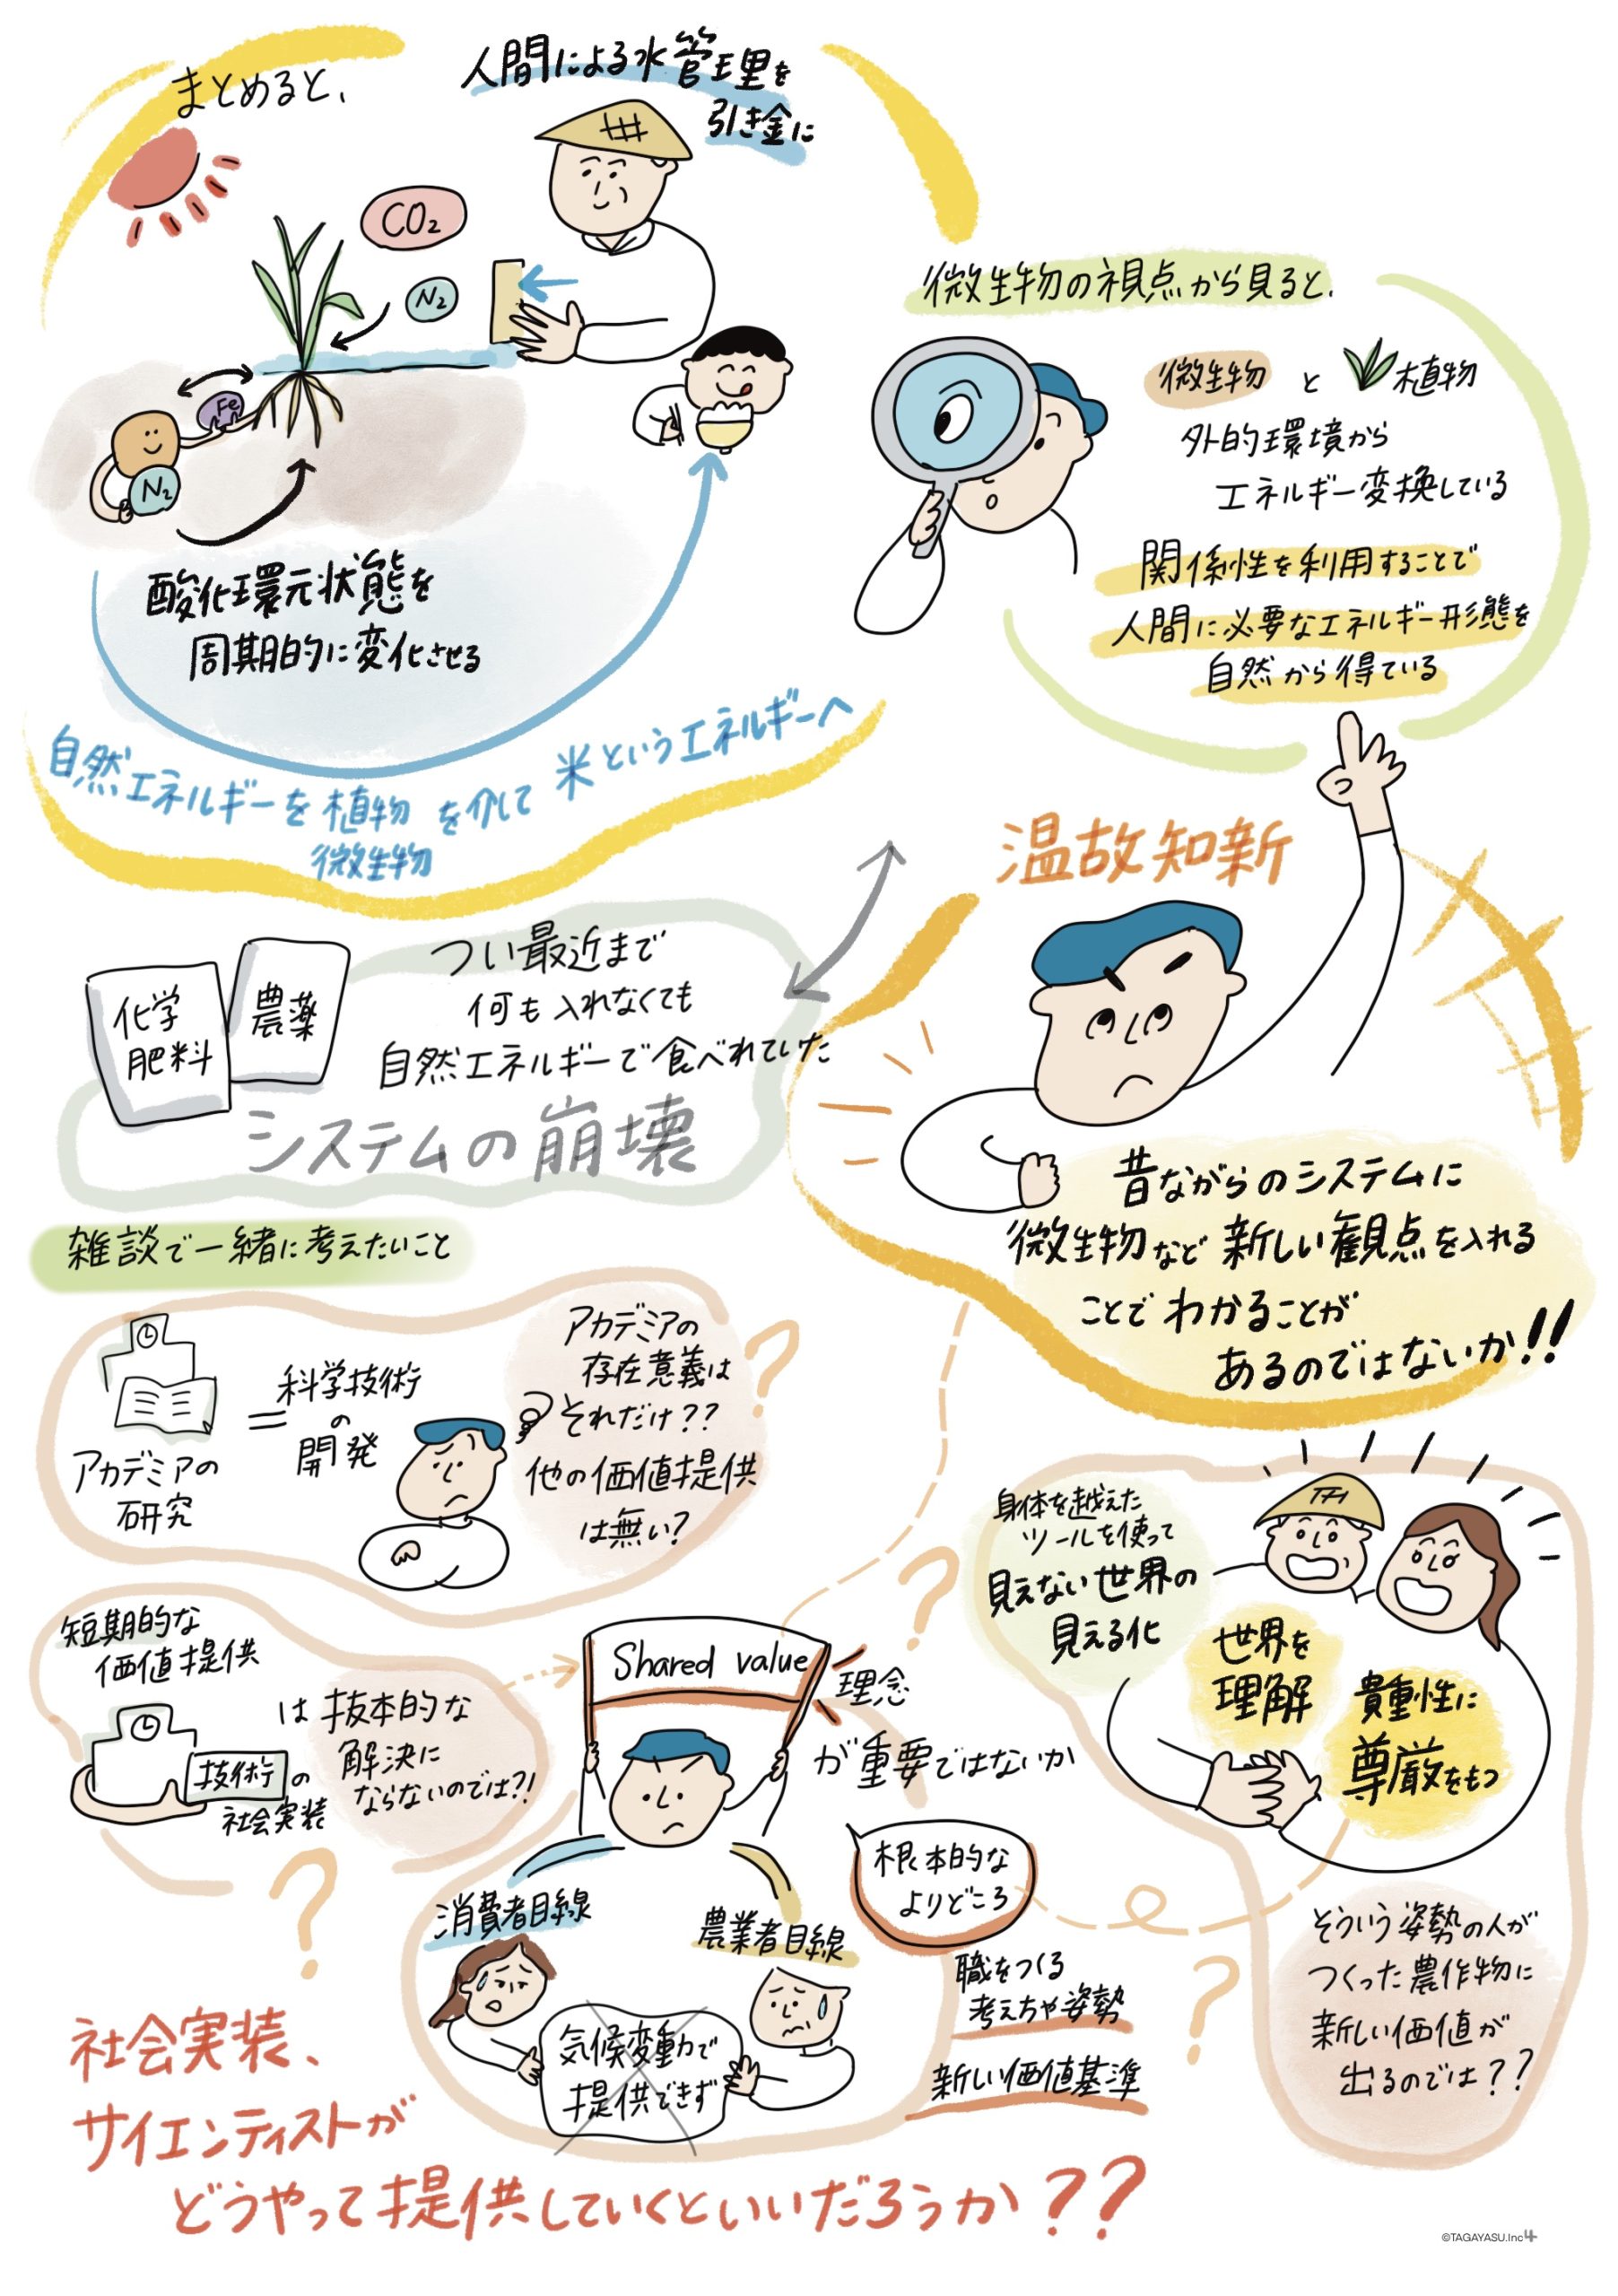 まとめると、
人間による水管理を
引き金に
CO₂
N₂
Fe
N₂
酸化環元状態を
周期的に変化させる
自然エネルギーを植物を介して米というエネルギーへ
微生物
微生物の視点から見ると、
微生物と植物
外的環境から
エネルギー変換している
関係性を利用することで
人間に必要なエネルギー形態を
自然から得ている
化学
肥料
農薬
つい最近まで
何も入れなくても
自然エネルギーで食べれていた
システムの崩壊
温故知新
昔ながらのシステムに
微生物など新しい観点を入れる
ことでわかることが
あるのではないか!!
雑談で一緒に考えたいこと
アカデミアの
研究
=
科学技術
の
開発
アカデミアの
存在意義は
それだけ??
他の価値提供
は無い?
?
短期的な
価値提供
技術の
社会実装
は抜本的な
解決に
ならないのでは?!
?
Shared value
理念
が重要ではないか
?
消費者目線
農業者目線
気候変動で
提供できず
根本的な
よりどころ
職をつくる
考えちや姿勢
新しい価値基準
身体を越えた
ツールを使って
見えない世界の
見える化
世界を
理解
貴重性に
尊厳をもつ
そういう姿勢の人が
つくった農作物に
新しい価値が
出るのでは??
?
社会実装、
サイエンティストが
どうやって提供していくといいだろうか??
©TAGAYASU.Inc